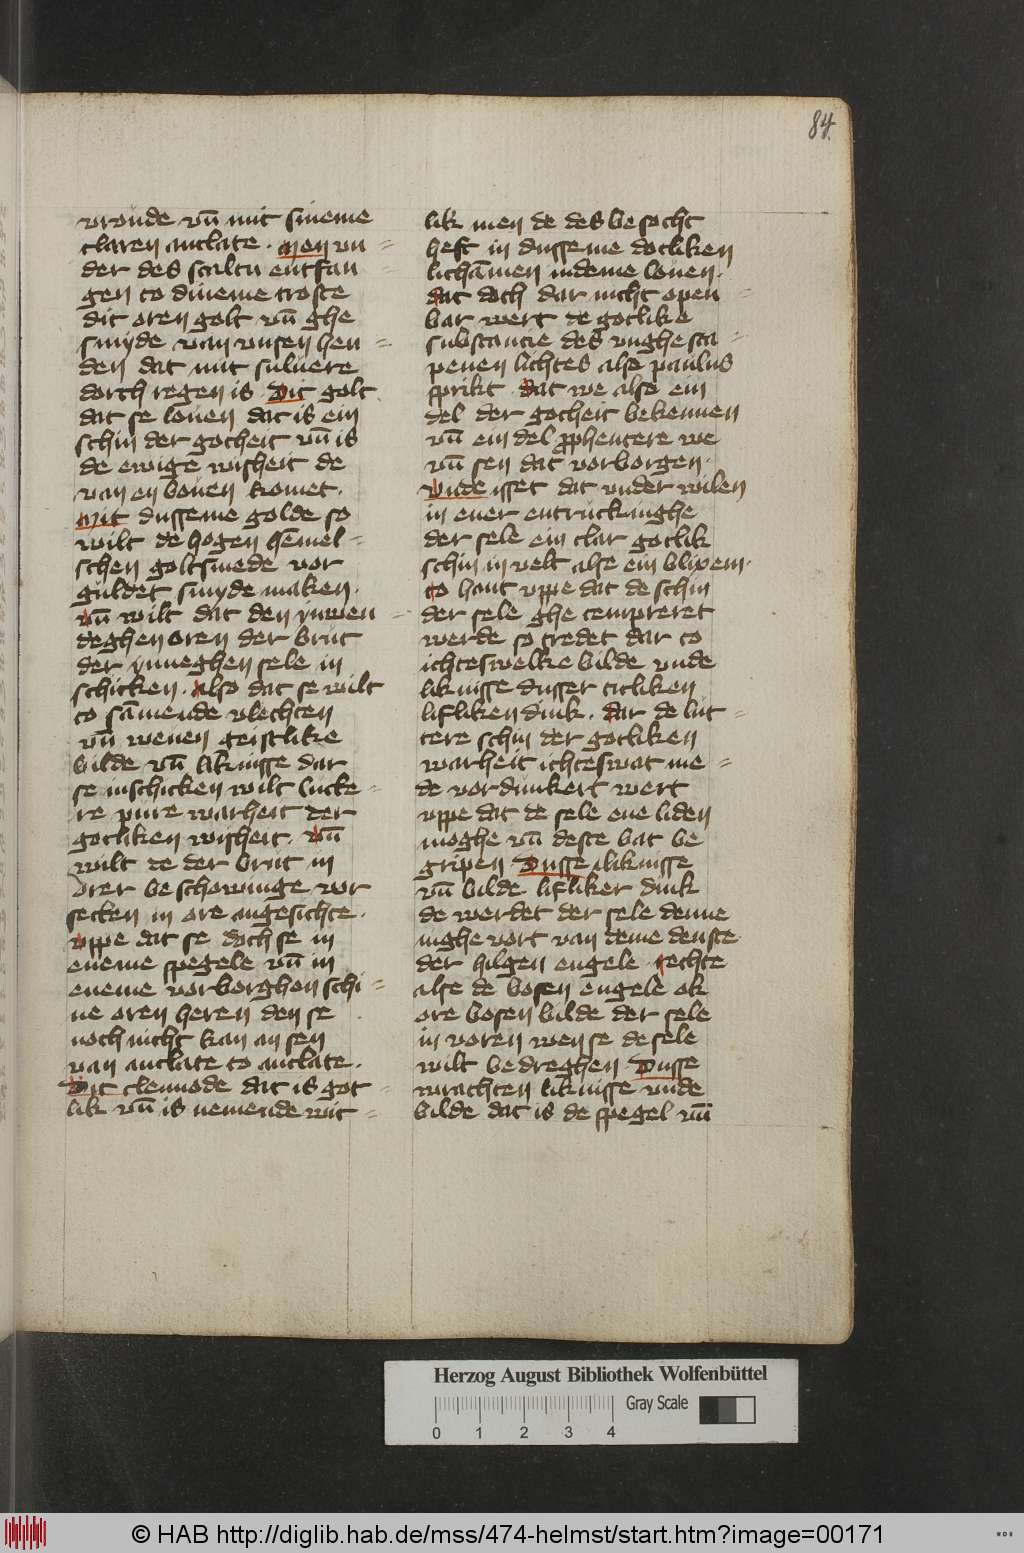 84
vronde vn̄ mit sineme
claren antlate. Nen vn=
der des scaltu entfan=
gen to dineme troste
dit oren golt vn̄ ghe
smyde van vnsen hen=
den dat mit suluere
dorch regen is Dit golt
dat se louen dat is ein
schin der gotheit vn̄ is
de ewige wisheit de
van en bouen komet.
Mit dusseme golde so
wilt de hogen hēmel=
schen goltsmede vor
guldet smyde maken.
vn̄ wilt dat den ynwen=
deghen oren der brut
der ynneghen sele in
schicken. Also dat se wilt
to sāmende vlechten
vn̄ weuen geistlike
bilde vn̄ liknisse dar
se inschicken wilt lutte=
re pure warheit der
gotliken wisheit. vn̄
wilt de der brut in
orer beschowinge vor
setten in ore angesichte.
vppe dat se doch se in
eneme spegele vn̄ in
eneme vorborghen schi=
ne oren heren den se
noch nicht kan an sen
van antlate to antlate.
Dit clennode dat is got=
lik vn̄ is nemende wit=
lik men de des besocht
heft in dusseme dotliken
lichāmen indeme louen.
dat doch dar nicht open=
bar wert de gotlike
substancie des vnghesca=
penen lichtes alse paulus
sprikt Dat we alse ein
del der gotheit bekennen
vn̄ ein del prophentere we
vn̄ sen dat vorborgen.
Vnde isset dat vnder wilen
in ener entruckinghe
der sele ein clar gotlik
schin in velt alse ein blixem.
to hant vppe dat de schin
der sele ghe tempreret
werde so tredet dar to
ichteswelke bilde vnde
liknisse dusser titliken
lifliken dink. dar de lut=
tere schin der gotliken
warheit ichteswat me=
de vordunkert wert
vppe dat de sele ene liden
moghe vn̄ deste bat be
gripen Dusse liknisse
vn̄ bilde lifliker dink
de werdet der sele denne
inghe vort van deme denste
der hilgen engele rechte
alse de bosen engele ok
ore bosen bilde der sele
in voren wen se de sele
wilt bedreghen Dusse
wrachten liknisse vnde
bilde dat is de spegel vn̄
Herzog August Bibliothek Wolfenbüttel
Gray Scale
0 1 2 3 4
© HAB http://diglib.hab.de/mss/474-helmst/start.htm?image=00171
WDB